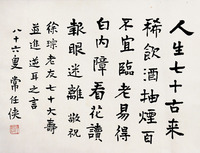 人生七十古来
稀飲酒抽烟百
不宜臨老易得
白内障看花讀
報眼迷離 敬祝
徐琮老友七十大壽
並進逆耳之言
八十六叟 常任俠